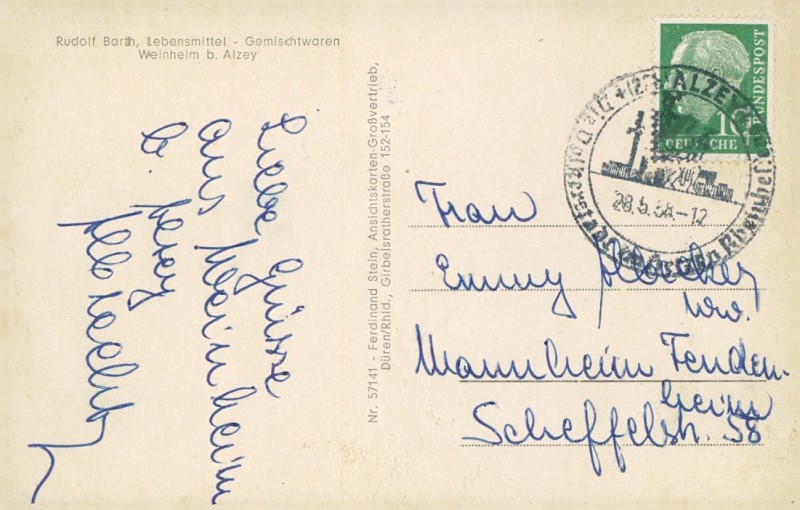 Rudolf Barth, Lebensmittel - Gemischtwaren
Weinheim b. Alzey
Liebe Grüsse
aus Weinheim
b.
Nr. 57141 - Ferdinand Stein, Ansichtskarten-Großvertrieb,
Düren/Rhld., Girbelsratherstraße 152-154
10
DEUTSCHE
BUNDESPOST
ALZEY
Die Volkerstadt
28.5.58.-12
Frau
Emmy
Wwe.
Mannheim Feuden-
heim
Scheffelstr. 58